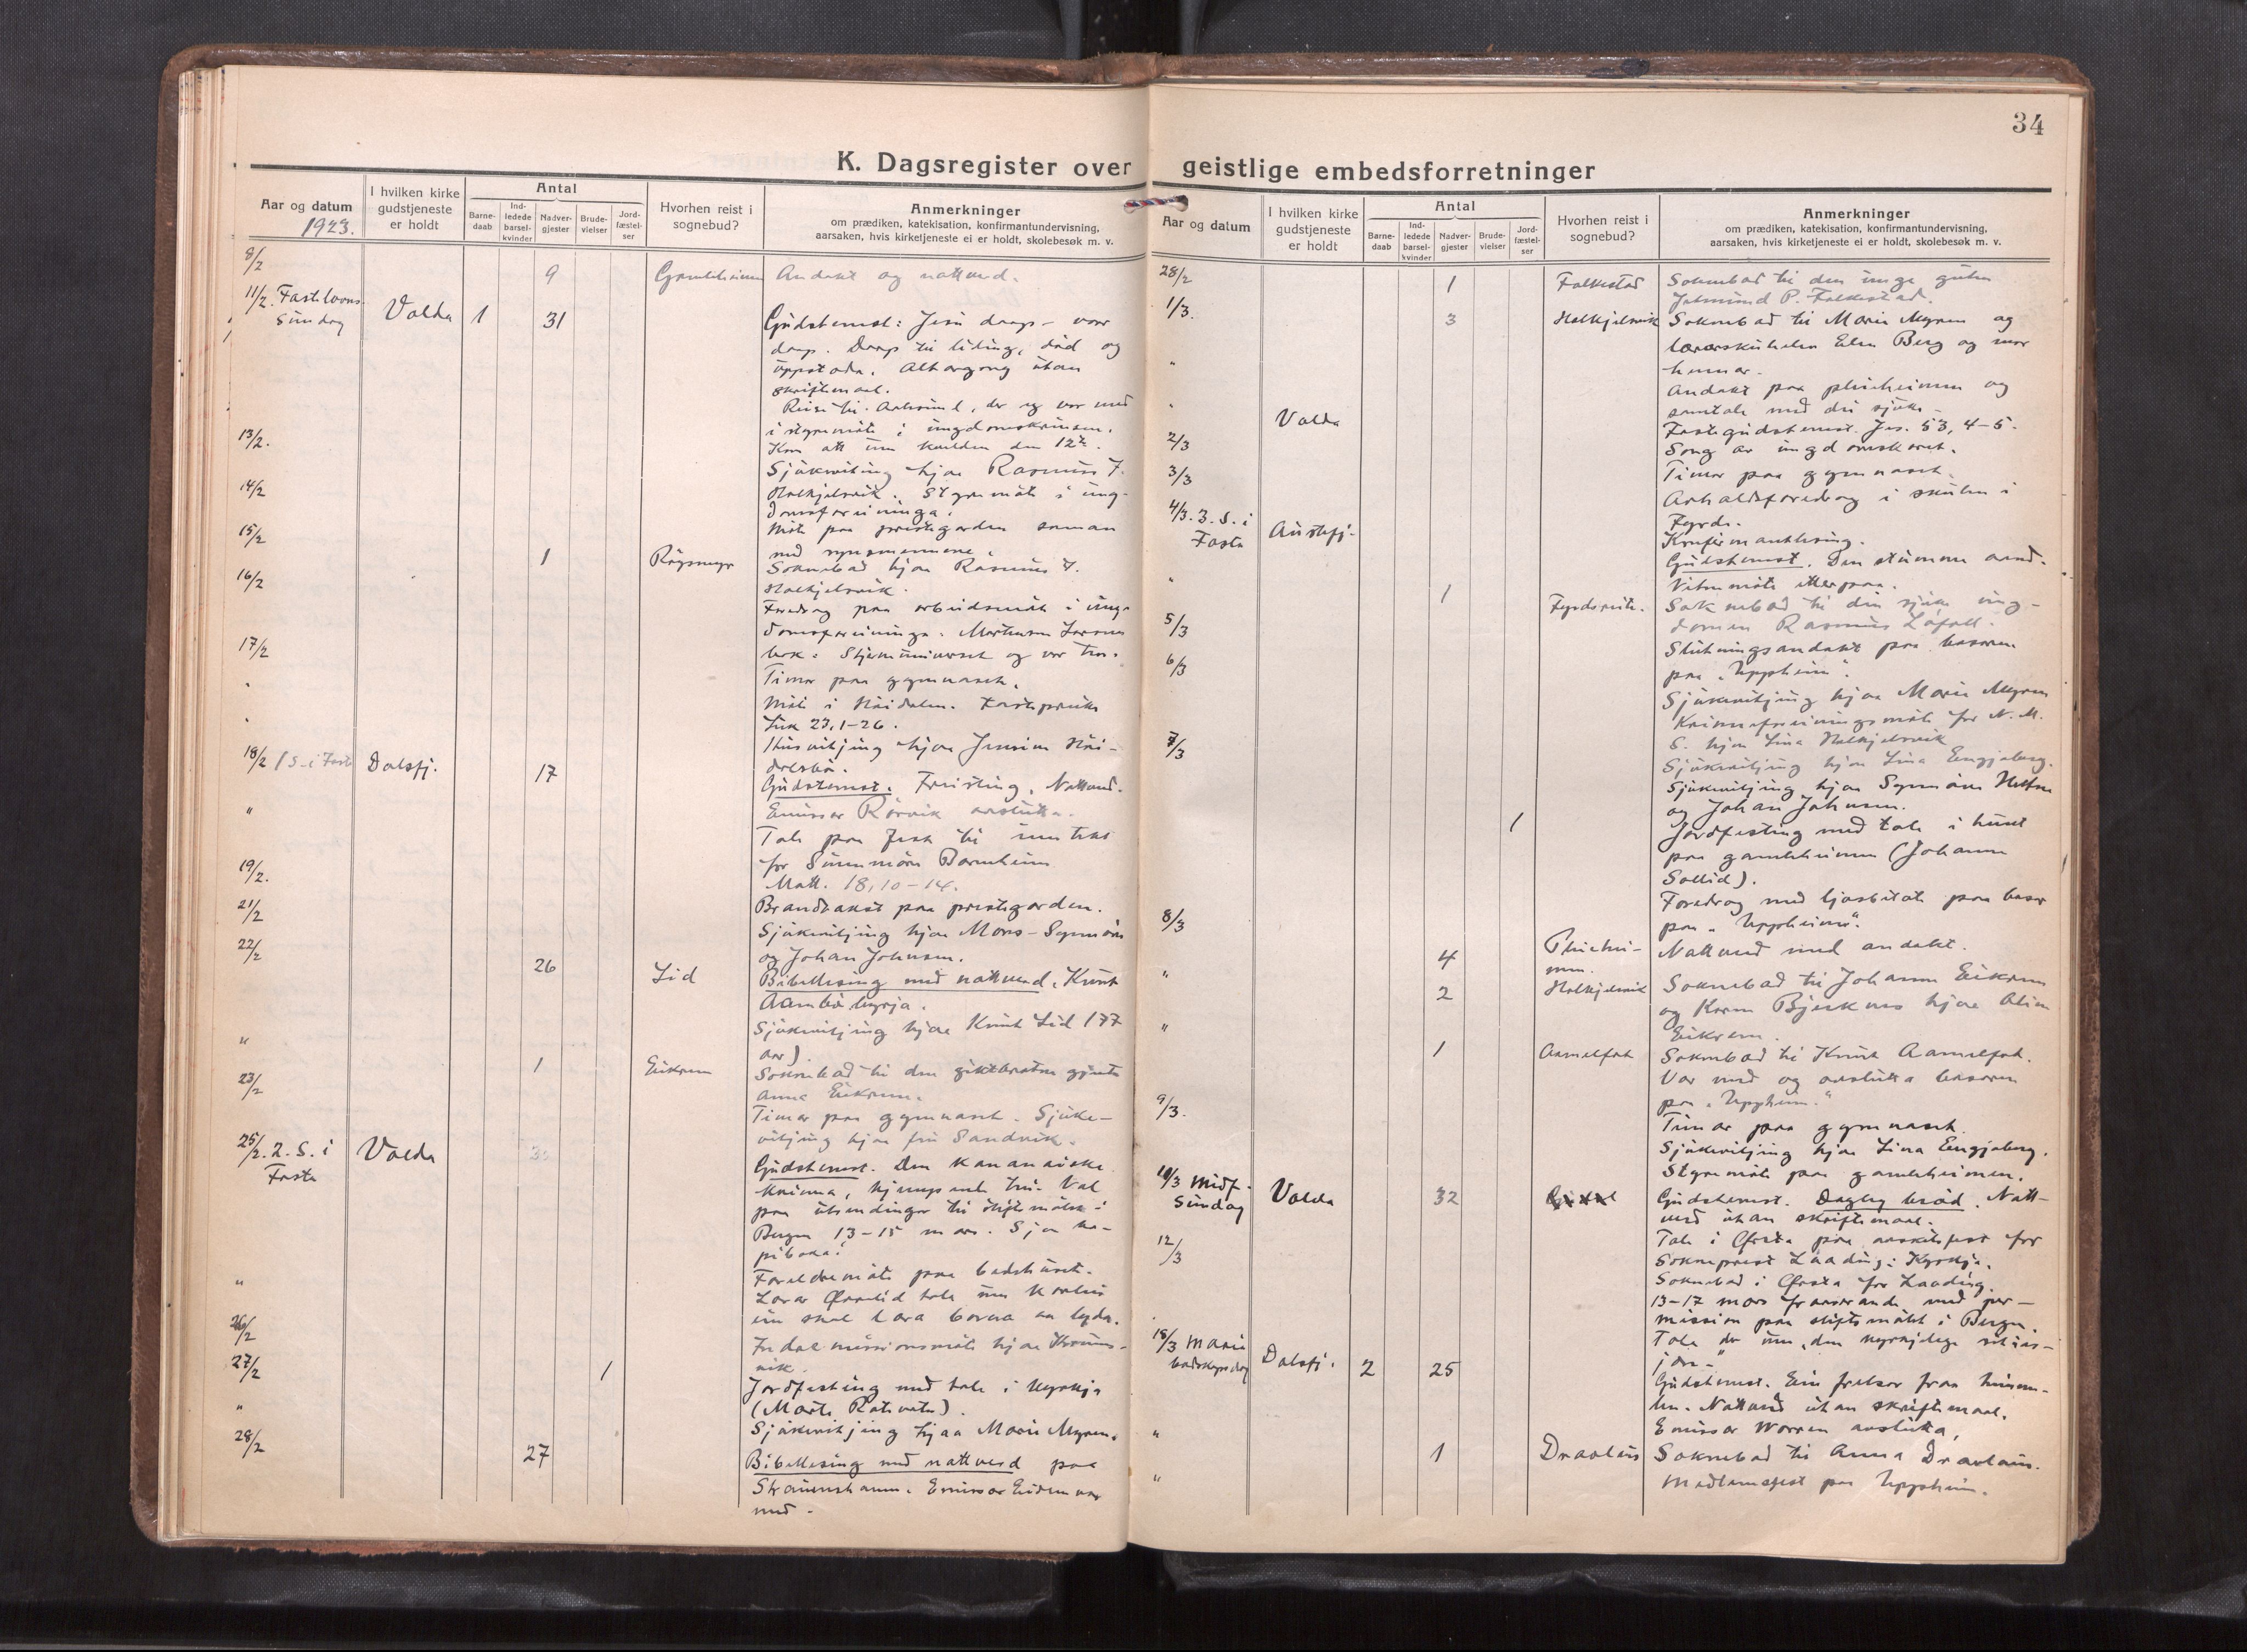 34
K. Dagsregister over geistlige embedsforretninger
Aar og datum
1923.
I hvilken kirke gudstjeneste er holdt
Antal
Barne-daab
Ind-ledede barsel-kvinder
Nadver-gjester
Brude-vielser
Jord-fæstel-ser
Hvorhen reist i sognebud?
Anmerkninger
om prædiken, katekisation, konfirmantundervisning,
aarsaken, hvis kirketjeneste ei er holdt, skolebesøk m. v.
8/2 9 Gamleheimen Andakt og nattverd.
11/2. Fastelavns Sundag Volda 1 31
Gudstenest: Jesu daap - vaar
daap. Daap til liding, død og
uppstoda. Altargong utan
skriftemaal.
Reise til, der eg var med
i styremøte i ungdomskrinsen.
Kom att um kvelden den 12te.
13/2.
Sjukvitjing hjaa Rasmus J.
14/2
Halkjelsvik. Styremøte i ung-
domsforeininga.
15/2
Møte paa prestegarden saman
med synsmennene.
1 Røysmyr Soknebad hjaa Rasmus J.
16/2
Halkjelsvik.
Foredrag paa arbeidsmøte i ung-
domsforeininga. Martensen Larsens
17/2
bok: Stjerneuniverset og vor tro.
Timar paa gymnaset.
Møte i. Fastepreike
Luk 23, 1-26.
Husvitjing hjaa
18/2 1 S. i Faste Dalsfj. 17
Gudstenest. Freisting. Nattverd.
Emissær Rørvik avslutta.
"
Tale paa fest til inntekt
for Sunnmøre Barneheim
Matt. 18, 10-14.
19/2.
Brandtakst paa prestegarden.
21/2
Sjukvitjing hjaa Mons-Synnøve
og Johan Johnsen.
22/2 26 Lid Bibellesing med nattverd. Knut
Aambø kyrja.
Sjukvitjing hjaa Knut Lid (77
aar).
" 1 Eikrem Soknebad til den giktbrotne gjenta
Anna Eikrem.
23/2
Timar paa gymnaset. Sjuke-
vitjing hjaa fru Sandvik.
25/2. 2. S. i Faste Volda
Gudstenest. Den kananæiske
kvinna, kjempande tru. Val
paa utsendingar til stiftsmøtet i
Bergen 13-15 mars. Sjaa ko-
piboka.
"
Foreldremøte paa bedehuset.
Lærar Ørnelid tala um korleis
ein skal læra borna aa lyda.
26/2
Indremissionsmøte hjaa
27/2 1
Jordfesting med tale i kyrkja
"
Sjukvitjing hjaa Marie Myren.
28/2 27
Bibellesing med nattverd paa
Straumshamn. Emissær Eidem var
med.
Aar og datum
I hvilken kirke gudstjeneste er holdt
Antal
Barne-daab
Ind-ledede barsel-kvinder
Nadver-gjester
Brude-vielser
Jord-fæstel-ser
Hvorhen reist i sognebud?
Anmerkninger
om prædiken, katekisation, konfirmantundervisning,
aarsaken, hvis kirketjeneste ei er holdt, skolebesøk m. v.
28/2 1 Folkestad Soknebad til den unge guten
Jetmund P. Folkestad.
1/3. 3 Halkjelsvik Soknebad til Marie Myren og
lærarskuleelev Elen Berg og mor
hennar.
"
Andakt paa pleieheimen og
samtale med dei sjuke.
" Volda
Fastegudstenest. Jes. 53, 4-5.
Song av ungdomskoret.
2/3
Timar paa gymnaset.
3/3
Avhaldsforedrag i skulen i
Fyrde.
Konfirmantlesing.
4/3. 3. S. i Faste Austefj.
Gudstenest. Den stumme aand.
Vitnemøte etterpaa.
" 1 Fyrdsreite. Soknebad til den sjuke ung-
domen Rasmus Løfoll.
5/3
Slutningsandakt paa basaren
paa "Uppheim".
6/3
Sjukevitjing hjaa Marie Myren
Kvinneforeiningsmøte for N. M.
S. hjaa Lina Halkjelsvik
Sjukevitjing hjaa Lina Engjaberg.
7/3
Sjukevitjing hjaa Synnøve
og Johan Johnsen.
1
Jordfesting med tale i huset
paa gamleheimen (Johanne
Sollid).
Foredrag med ljosbilæte paa basar
paa "Uppheim".
8/3 4 Pleieheimen. Nattverd med andakt.
" 2 Halkjelsvik Soknebad til Johanne Eikrem
og Karen Bjerknes hjaa Oline
Eikrem.
" 1 Aamelfot Soknebad til Knut Aamelfot.
Var med og avslutta basaren
paa "Uppheim."
9/3.
Timar paa gymnaset.
Sjukevitjing hjaa Lina Engjaberg.
Styremøte paa gamleheimen.
10/3 Midf. Sundag Volda 32
Gudstenest. Dagleg brød. Natt-
verd utan skriftemaal.
12/3
Tale i Ørsta paa avskilsfest for
Sokneprest Laading i Kyrkja.
Soknebad i Ørsta for Laading.
13-17 mars fraverande med per-
mission paa stiftsmøtet i Bergen.
Tala der um "den kyrkjelege
18/3 Marie bodskapsdag Dalsfj. 2 25
Gudstenest. Ein frelsar fraa himme-
len. Nattverd utan skriftemaal.
Emissær Worren avslutta.
" 1 Dravlaus Soknebad til Anna Dravlaus.
" Medlemsfest paa Uppheim.